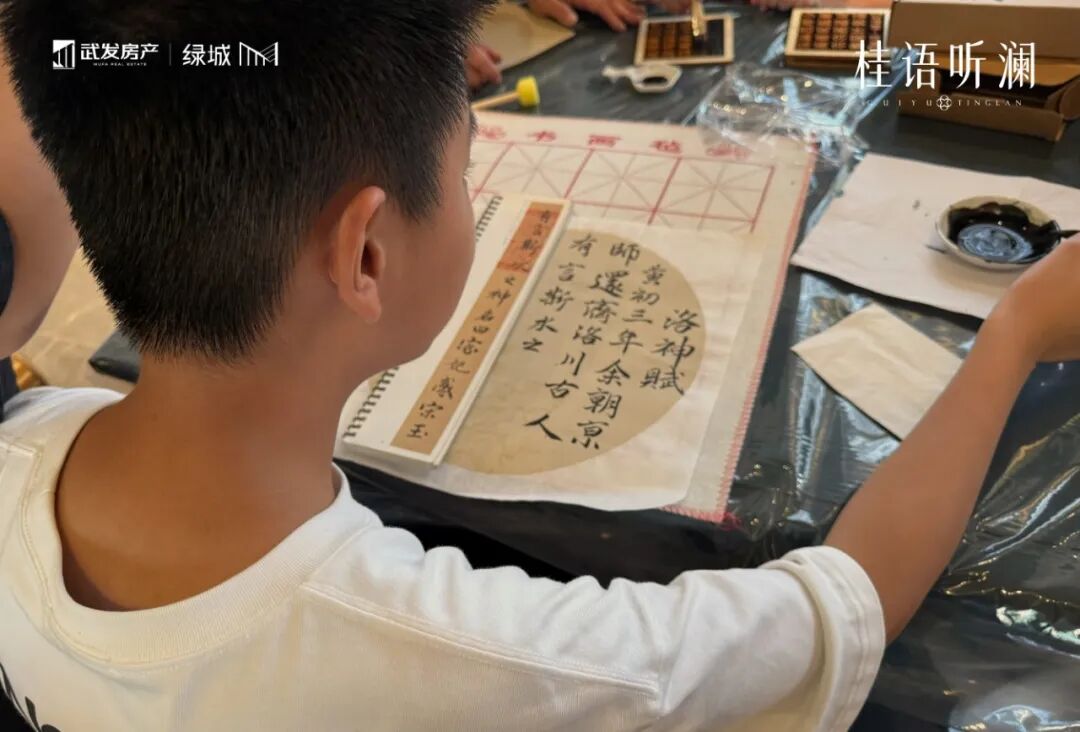 武发房产
WUFA REAL ESTATE
绿城
桂语听澜
GUIYU TINGLAN
书画毡
洛神賦
黄初三年余朝京
師還濟洛川古人
有言斯水之
有言斯水之神名曰宓妃感宋玉